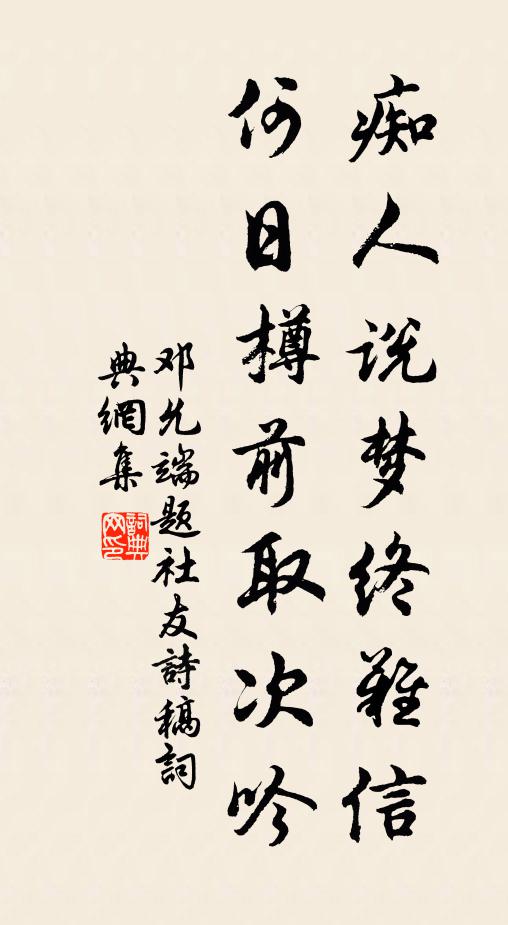 痴人说梦终难信
何日樽前取次吟
邓允端题社友詩稿詞
典網集
詞典網印